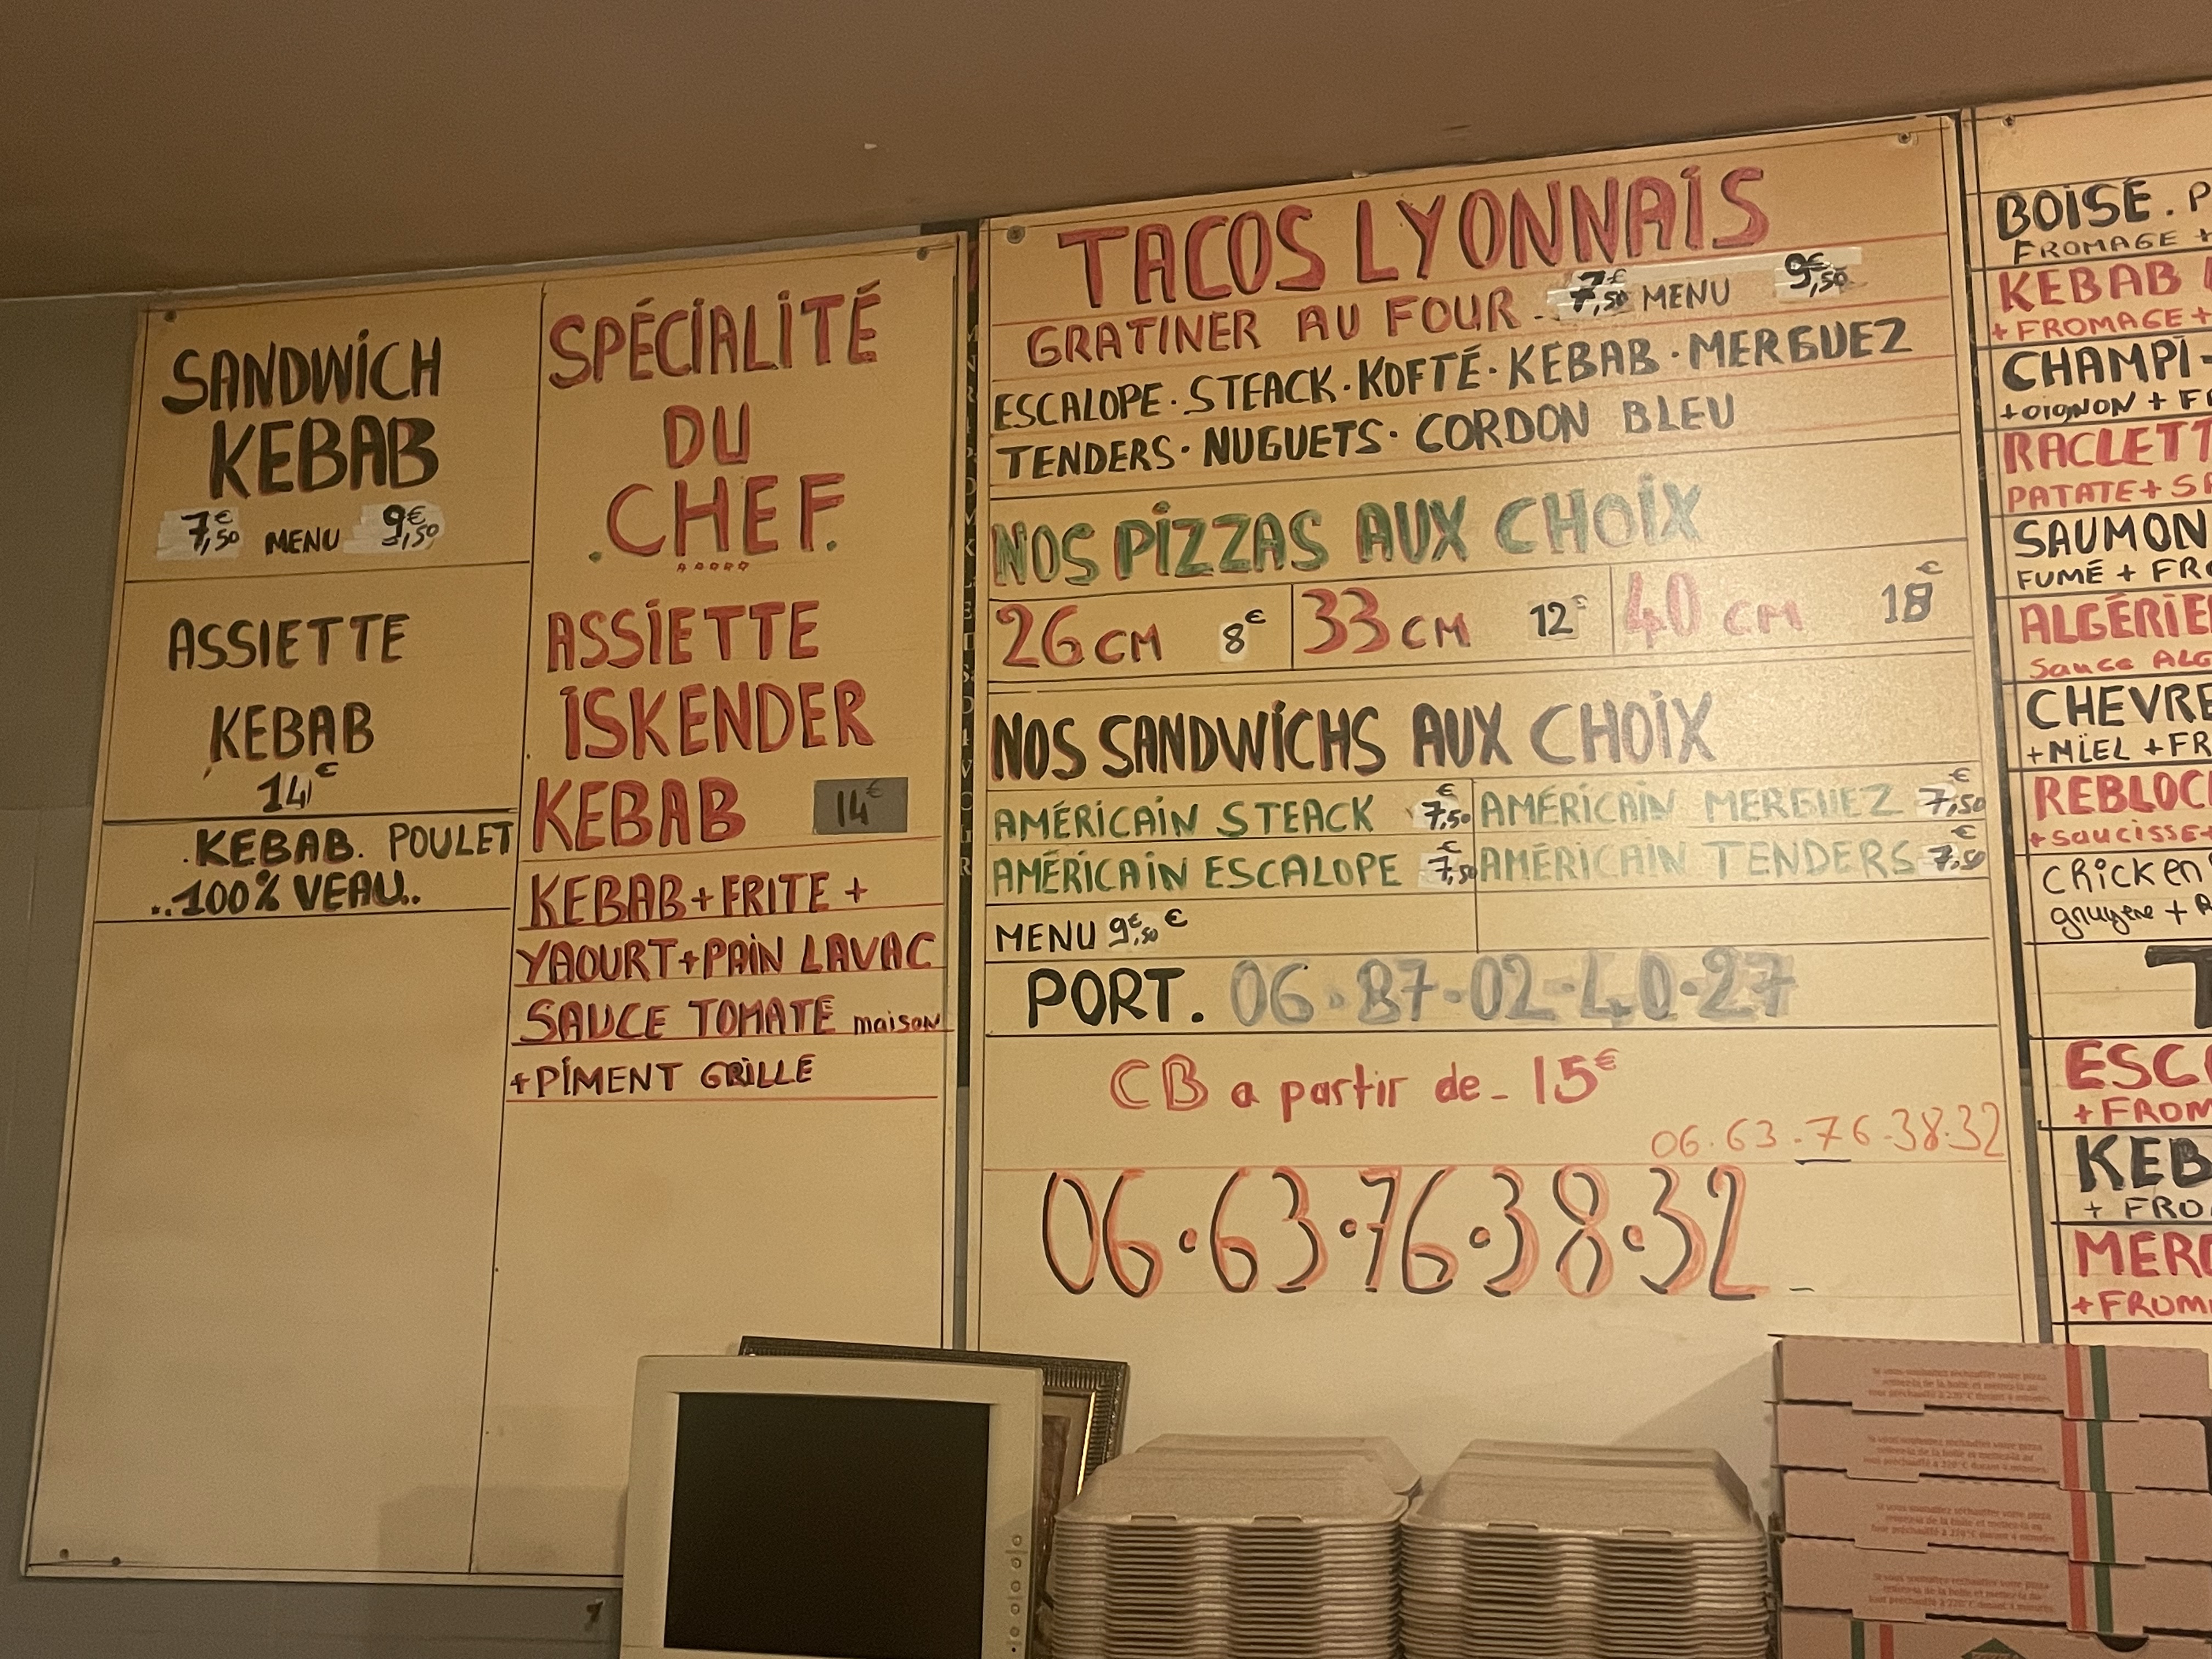 SANDWICH
KEBAB
7,50€ MENU 9,50€
ASSIETTE
KEBAB
14€
.KEBAB. POULET
..100% VEAU..
SPÉCIALITÉ
DU
.CHEF.
ASSIETTE
ISKENDER
KEBAB 14€
KEBAB+FRITE +
YAOURT+PAIN LAVAC
SAUCE TOMATE maison
+PIMENT GRILLE
TACOS LYONNAIS
GRATINER AU FOUR - 7,50€ MENU 9,50€
ESCALOPE. STEACK. KOFTÉ. KEBAB. MERGUEZ
TENDERS. NUGUETS. CORDON BLEU
NOS PIZZAS AUX CHOIX
26 CM 8€ 33 CM 12€ 40 CM 18€
NOS SANDWICHS AUX CHOIX
AMÉRICAIN STEACK 7,50€ AMÉRICAIN MERGUEZ 7,50€
AMÉRICAIN ESCALOPE 7,50€ AMÉRICAIN TENDERS 7,50€
MENU 9€,50 €
PORT. 06.87-02-40.27
CB a partir de - 15€
06.63.76.38.32
06.63.76.38.32
BOISÉ.
FROMAGE +
KEBAB
+ FROMAGE +
CHAMPI
+OIGNON +
PATATE+
SAUMON
FUMÉ +
Sauce
+MIEL +
+saucisse+
Chicken
gruyere +
+
KEB
+
+
Si vous souhaitez réchauffer votre pizza